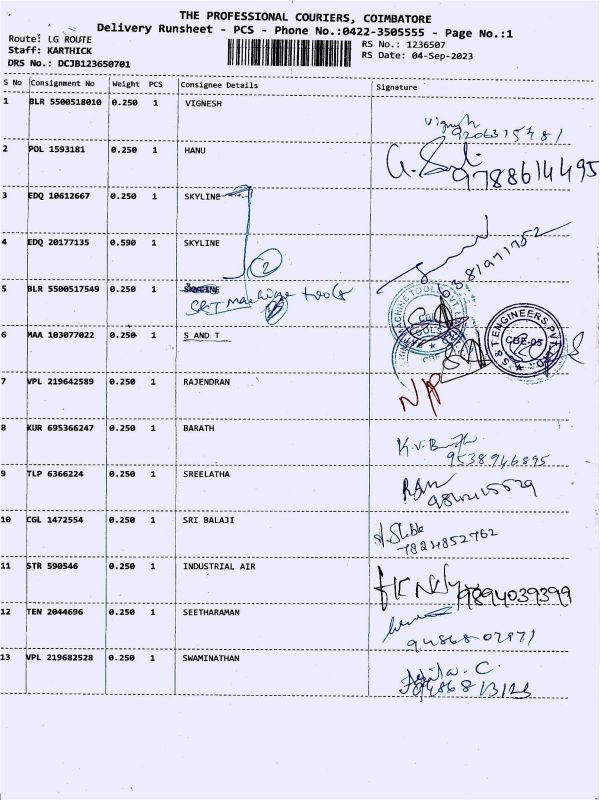 THE PROFESSIONAL COURIERS, COIMBATORE
Delivery Runsheet - PCS - Phone No.:0422-3505555 - Page No.:1
Route: LG ROUTE
Staff: KARTHICK
DRS No.: DCJB123650701
RS No.: 1236507
RS Date: 04-Sep-2023
S No Consignment No Weight PCS Consignee Details Signature
1 BLR 5500518010 0.250 1 VIGNESH
2 POL 1593181 0.250 1 HANU
9788614495
3 EDQ 10612667 0.250 1 SKYLINE
4 EDQ 20177135 0.590 1 SKYLINE
2
5 BLR 5500517549 0.250 1 SKYLINE
machine tools
6 MAA 103077022 0.250 1 S AND T
S & T ENGINEERS PVT. LTD.
CBE-05
7 VPL 219642589 0.250 1 RAJENDRAN
8 KUR 695366247 0.250 1 BARATH
9538946895
9 TLP 6366224 0.250 1 SREELATHA
10 CGL 1472554 0.250 1 SRI BALAJI
7824852762
11 STR 590546 0.250 1 INDUSTRIAL AIR
9894039399
12 TEN 2044696 0.250 1 SEETHARAMAN
13 VPL 219682528 0.250 1 SWAMINATHAN